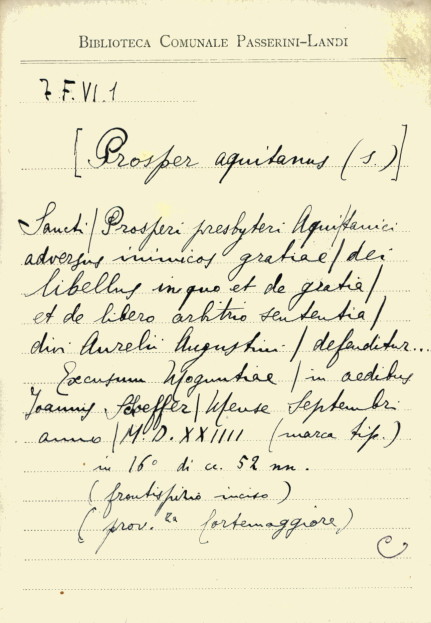 BIBLIOTECA COMUNALE PASSERINI-LANDI
7.F.VI.1
[Prosper aquitanus (s.)]
Sancti / Prosperi presbyteri Aqui/tanici
adversus inimicos gratiae / dei
libellus in quo et de gratia /
et de libero arbitrio sententia /
divi Aurelii Augustini / defenditur...
Excusum Moguntiae / in aedibus
Joannis Schoeffer / Mense Septembri
anno / M.D.XXIIII (marca tip.)
in 16° di cc. 52 nn.
(frontispizio inciso)
(prov.za Cortemaggiore)